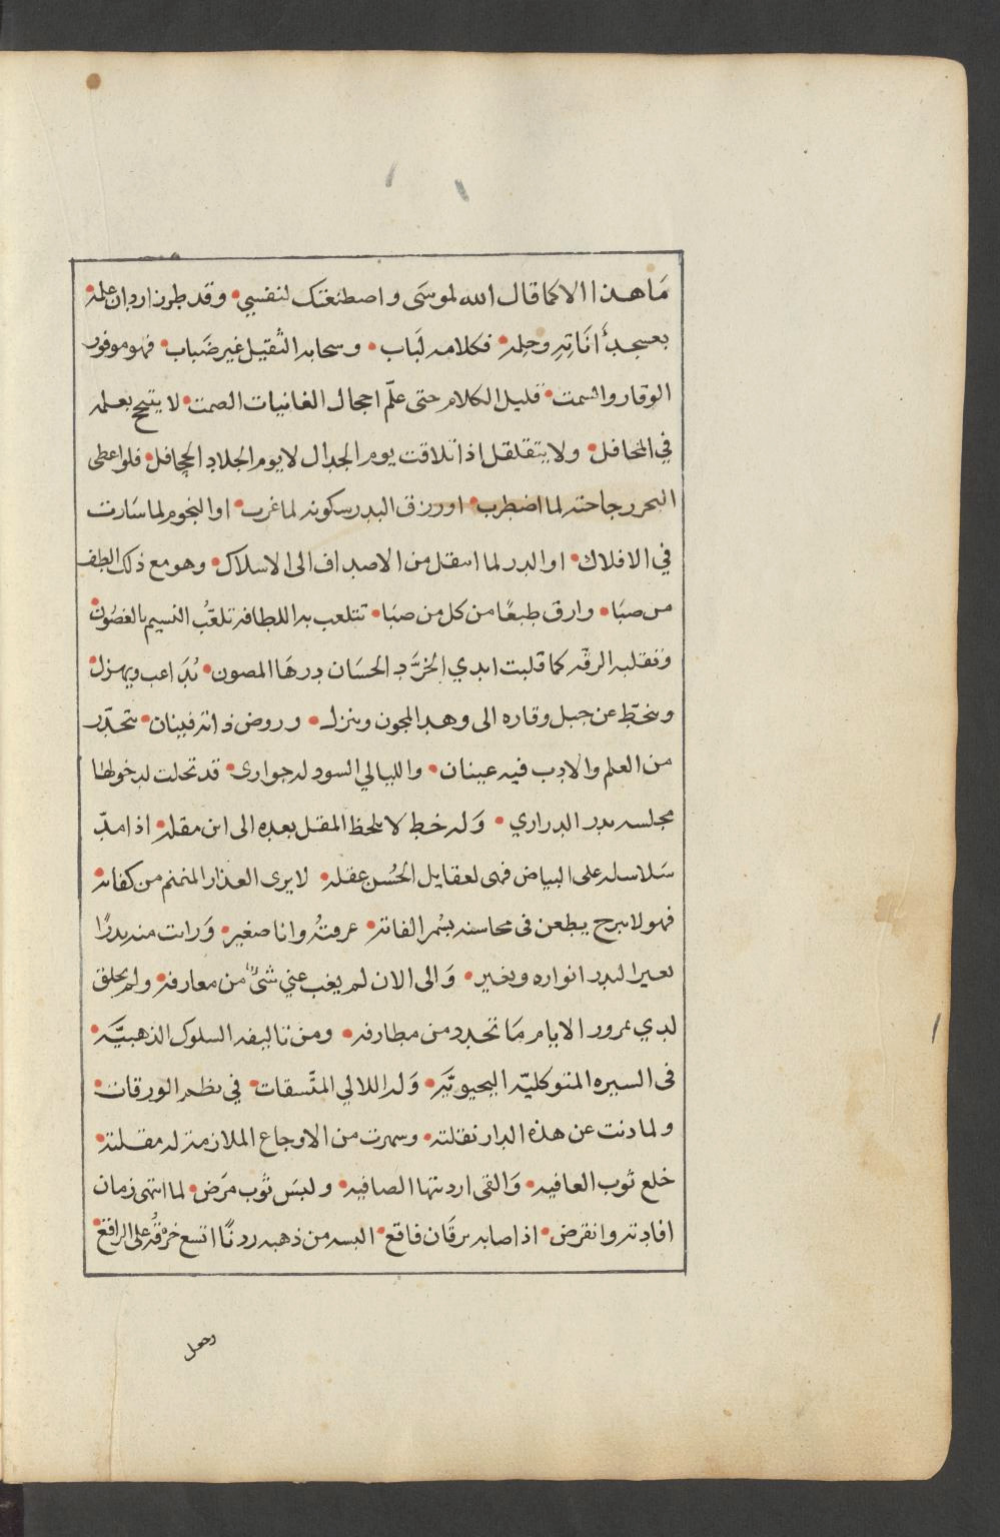 مَا هذا الا كما قال الله لموسَى واصطنعتك لنفسي • وقد طرز اردان علمه •
بعسجد أنَاتِهِ وحِلمِه • فكلامه لبَاب • وسحابه الثقيل غير ضَباب • فهو موفور
الوقار والسمت • قليل الكلام حتى علّم احجال الغانيات الصمت • لا يتبجح بعلمه
في المحافل • ولا يتقلقل اذا تلاقت يوم الجدال لا يوم الجلاد الجحافل • فلو اعطى
البحر رجاحته لما اضطرب • او رزق البدر سكونه لما غرب • او النجوم لما سَارت
في الافلاك • او الدر لما انتقل من الاصداف الى الاسلاك • وهو مع ذلك الطف
من صبَا • وارق طبعًا من كل من صبَا • تتلعب به اللطافه تلعّبُ النسيم بالغصُون •
وتقلبه الرقّه كما قلبت ايدي الخرَّد الحسَان دررهَا المصون • يُدَاعب ويهزل •
وينحطّ عن جبل وقاره الى وهد المجون وينزل • وروض ذاته فينان • تتحدّر
من العلم والادب فيه عينان • والليالي السود له جوارى • قد تحلت لدخولها
مجلسه بدر الدراري • وَله خط لا تلحظ المقل بعده الى ابن مقله • اذا مدّ
سَلاسله على البياض فهى لعقايل الحُسن عقله • لا يرى العذار المنمنم من كفاته •
فهو لا يبرح يطعن فى محاسنه بسُمر الفاته • عرفتُه وانا صغير • وَرات منه بدرًا
يعير البدر انواره ويغير • وَالى الان لم يغب عني شىءٌ من معارفه • ولم يخلق
لدي بمرور الايام مَا تجدد من مطارفه • ومن تاليفه السلوك الذهبيَّه •
فى السيره المتوكليّه اليحيويَّه • وَله اللالي المتّسقات • في نظم الورقات •
ولما دنت عن هذه الدار نقلته • وسهرت من الاوجاع الملازمة له مقلته •
خلع ثوب العافيه • وَالقى ارديتها الصافيه • ولبسَ ثوب مرَض • لما انتهى زمان
افادته وانقرض • اذ اصابه يرقَان فاقع • البسه من ذهبه ردنًا اتسع خرقُه على الراقع •
وجعل